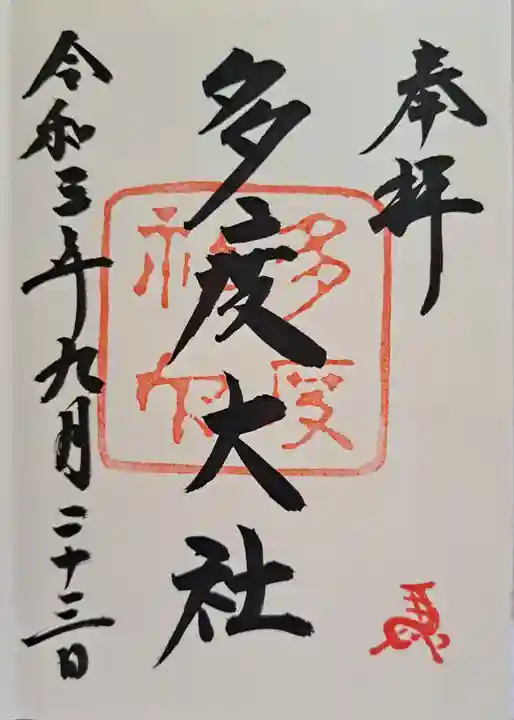 奉拝
多度大社
令和三年九月二十三日
多度
神社
馬